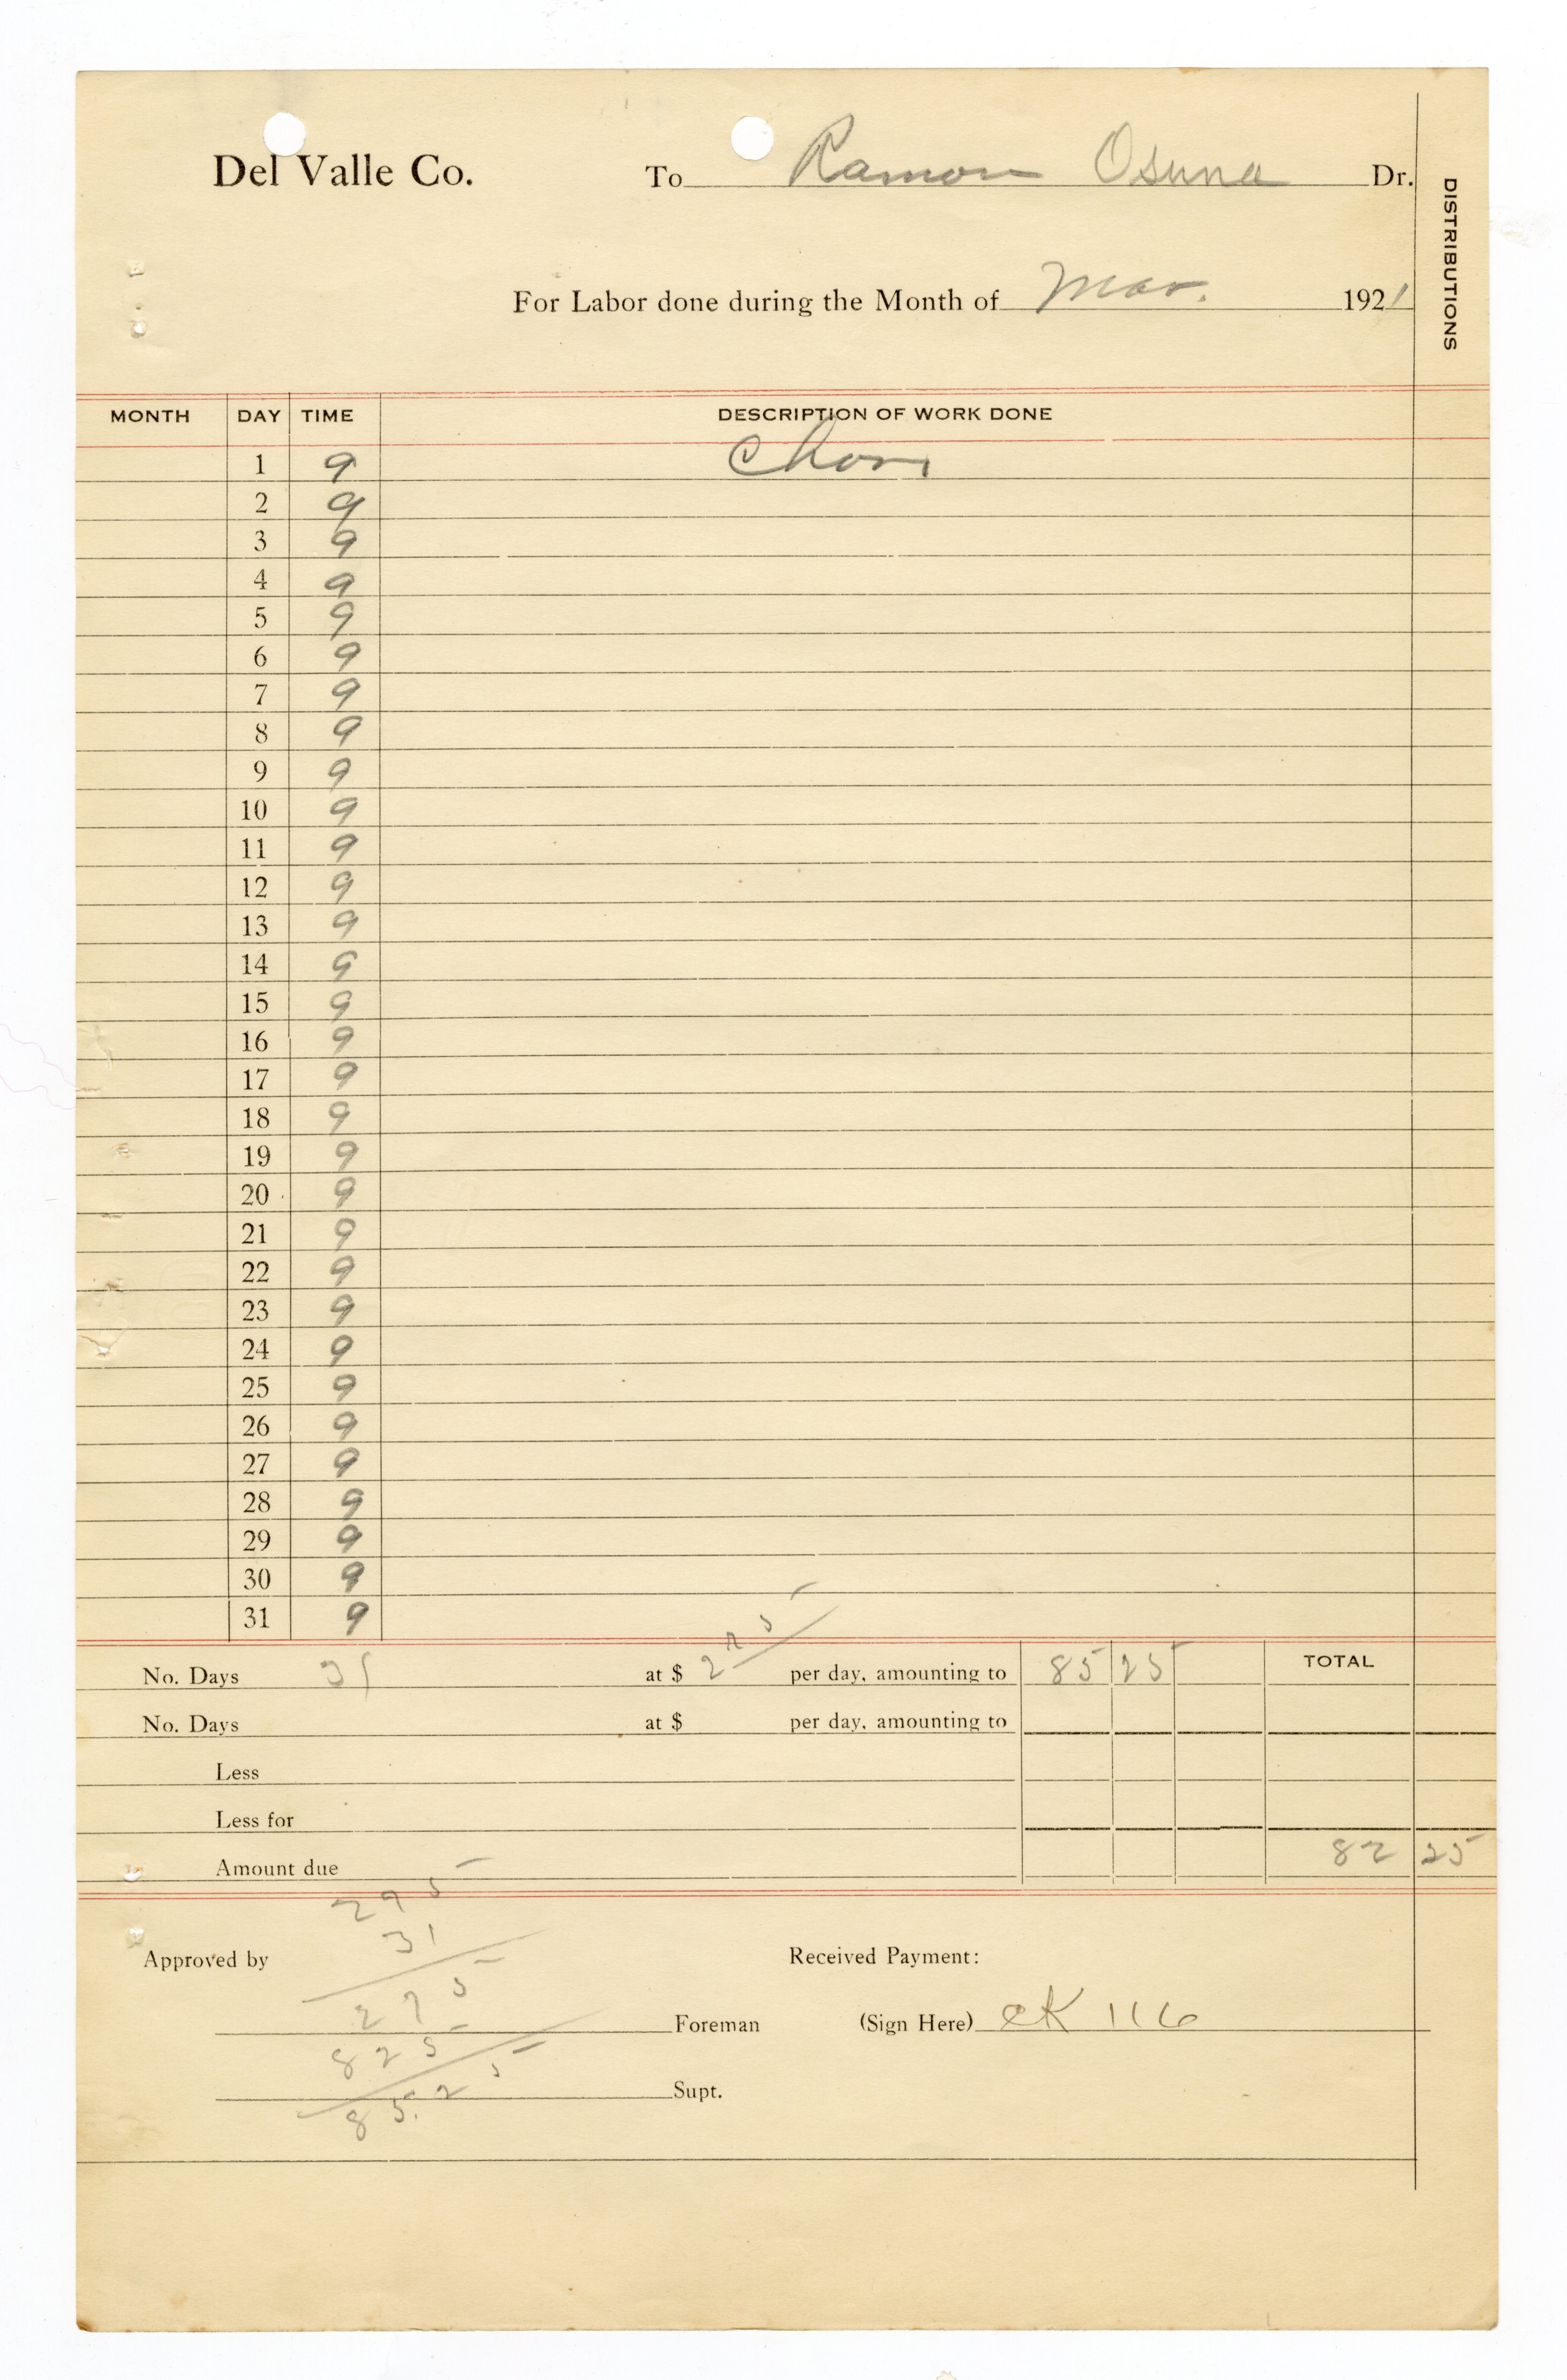 Del Valle Co. To Ramon Osuna Dr.
DISTRIBUTIONS
For Labor done during the Month of Mar. 1921
MONTH DAY TIME DESCRIPTION OF WORK DONE
1 9
2 9
3 9
4 9
5 9
6 9
7 9
8 9
9 9
10 9
11 9
12 9
13 9
14 9
15 9
16 9
17 9
18 9
19 9
20 9
21 9
22 9
23 9
24 9
25 9
26 9
27 9
28 9
29 9
30 9
31 9
No. Days 31 at $ 2 75 per day, amounting to 85 25 TOTAL
No. Days at $ per day, amounting to
Less
Less for
Amount due 82 25
275
31
Approved by Received Payment:
275
Foreman (Sign Here) CK 116
825
Supt.
85.25